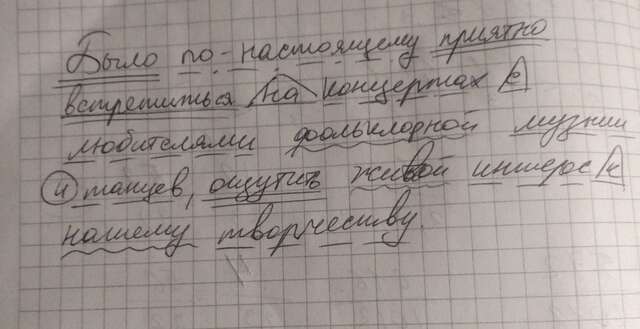 Было по-настоящему приятно
встретиться на концертах с
любителями фольклорной музыки
и танцев, ощутить живой интерес к
нашему творчеству.